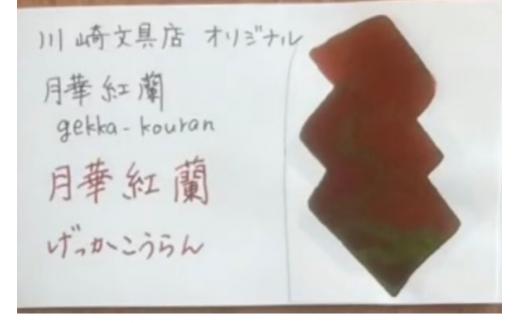 川崎文具店 オリジナル
月華紅蘭
gekka-kouran
月華紅蘭
げっかこうらん